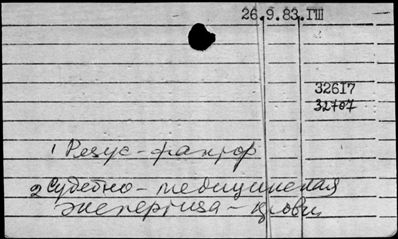 26.9.83.ГШ
32617
32707
1 Резус-фактор
2 Судебно-медицинская
экспертиза-крови